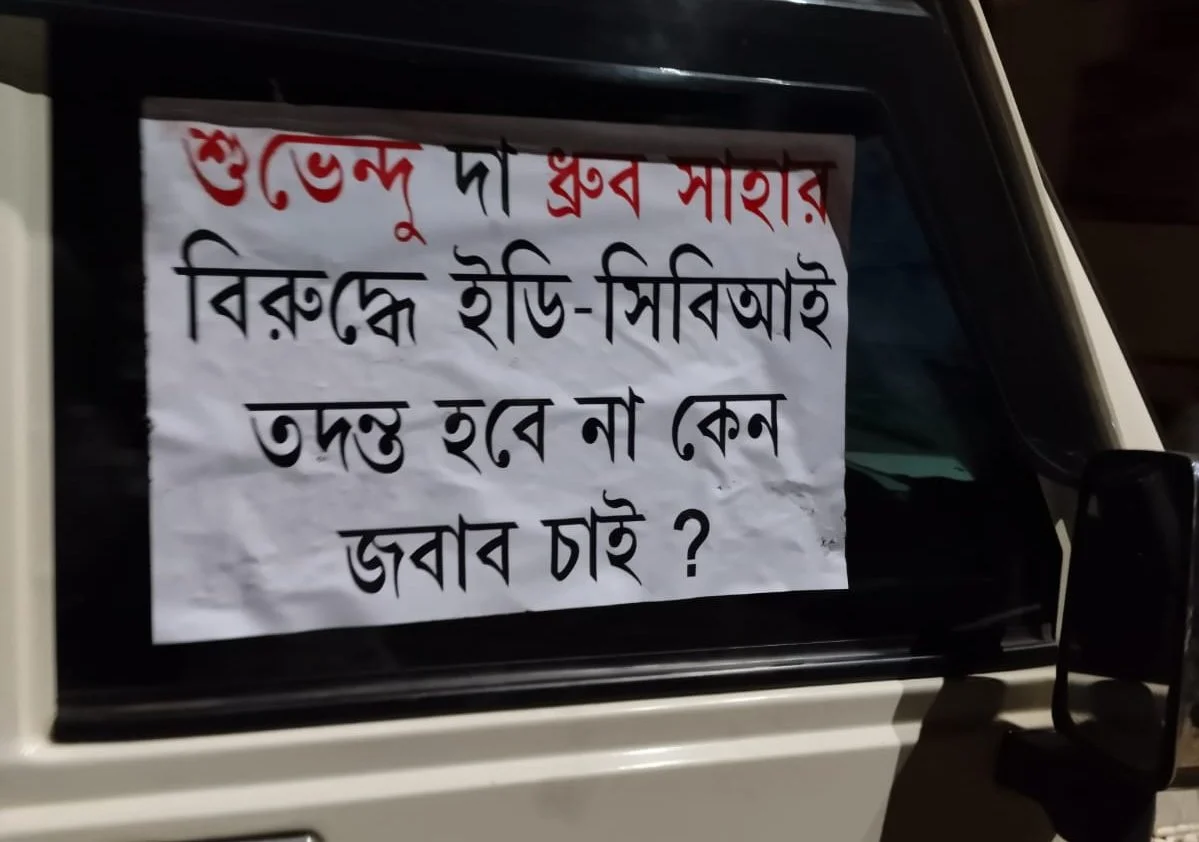 শুভেন্দু দা ধ্রুব সাহার
বিরুদ্ধে ইডি-সিবিআই
তদন্ত হবে না কেন
জবাব চাই ?